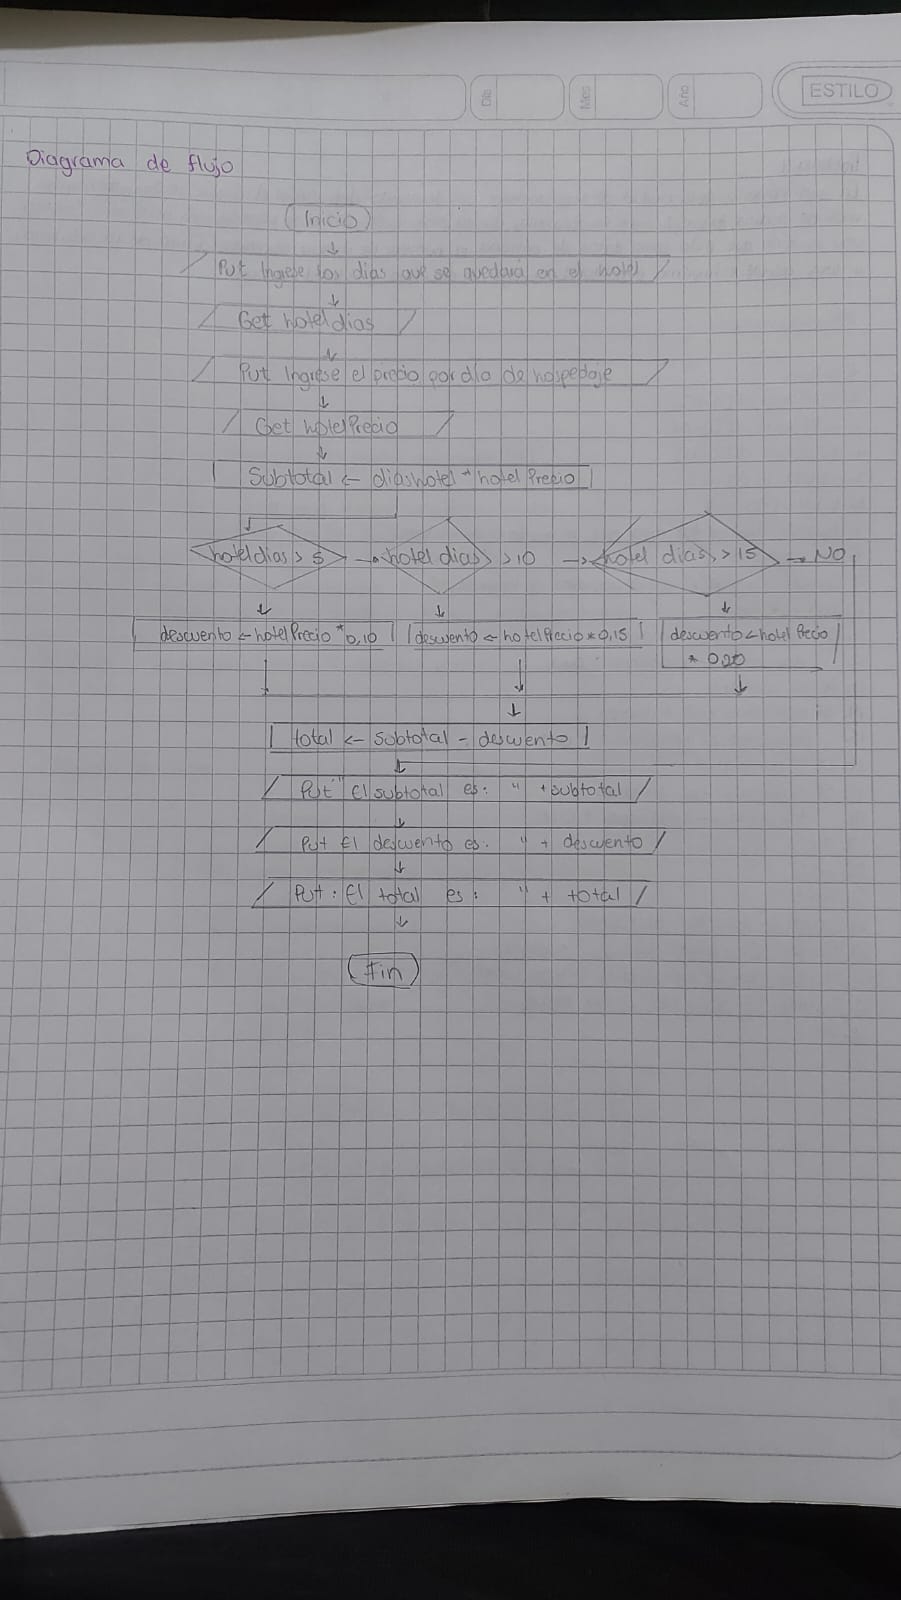 Día
Mes
Año
ESTILO
Diagrama de flujo
Inicio
Put Ingrese los dias que se quedara en el hotel
Get hoteldias
Put Ingrese el precio por dia de hospedaje
Get hotelPrecio
Subtotal ← diashotel * hotelPrecio
hoteldias > 5 → hotel dias > 10 → hotel dias > 15 → NO
descuento ← hotelPrecio * 0,10
descuento ← hotelPrecio * 0,15
descuento ← hotel Precio
* 0,20
total ← subtotal - descuento
Put "El subtotal es: " + subtotal
Put El descuento es. " + descuento
Put: El total es: " + total
Fin